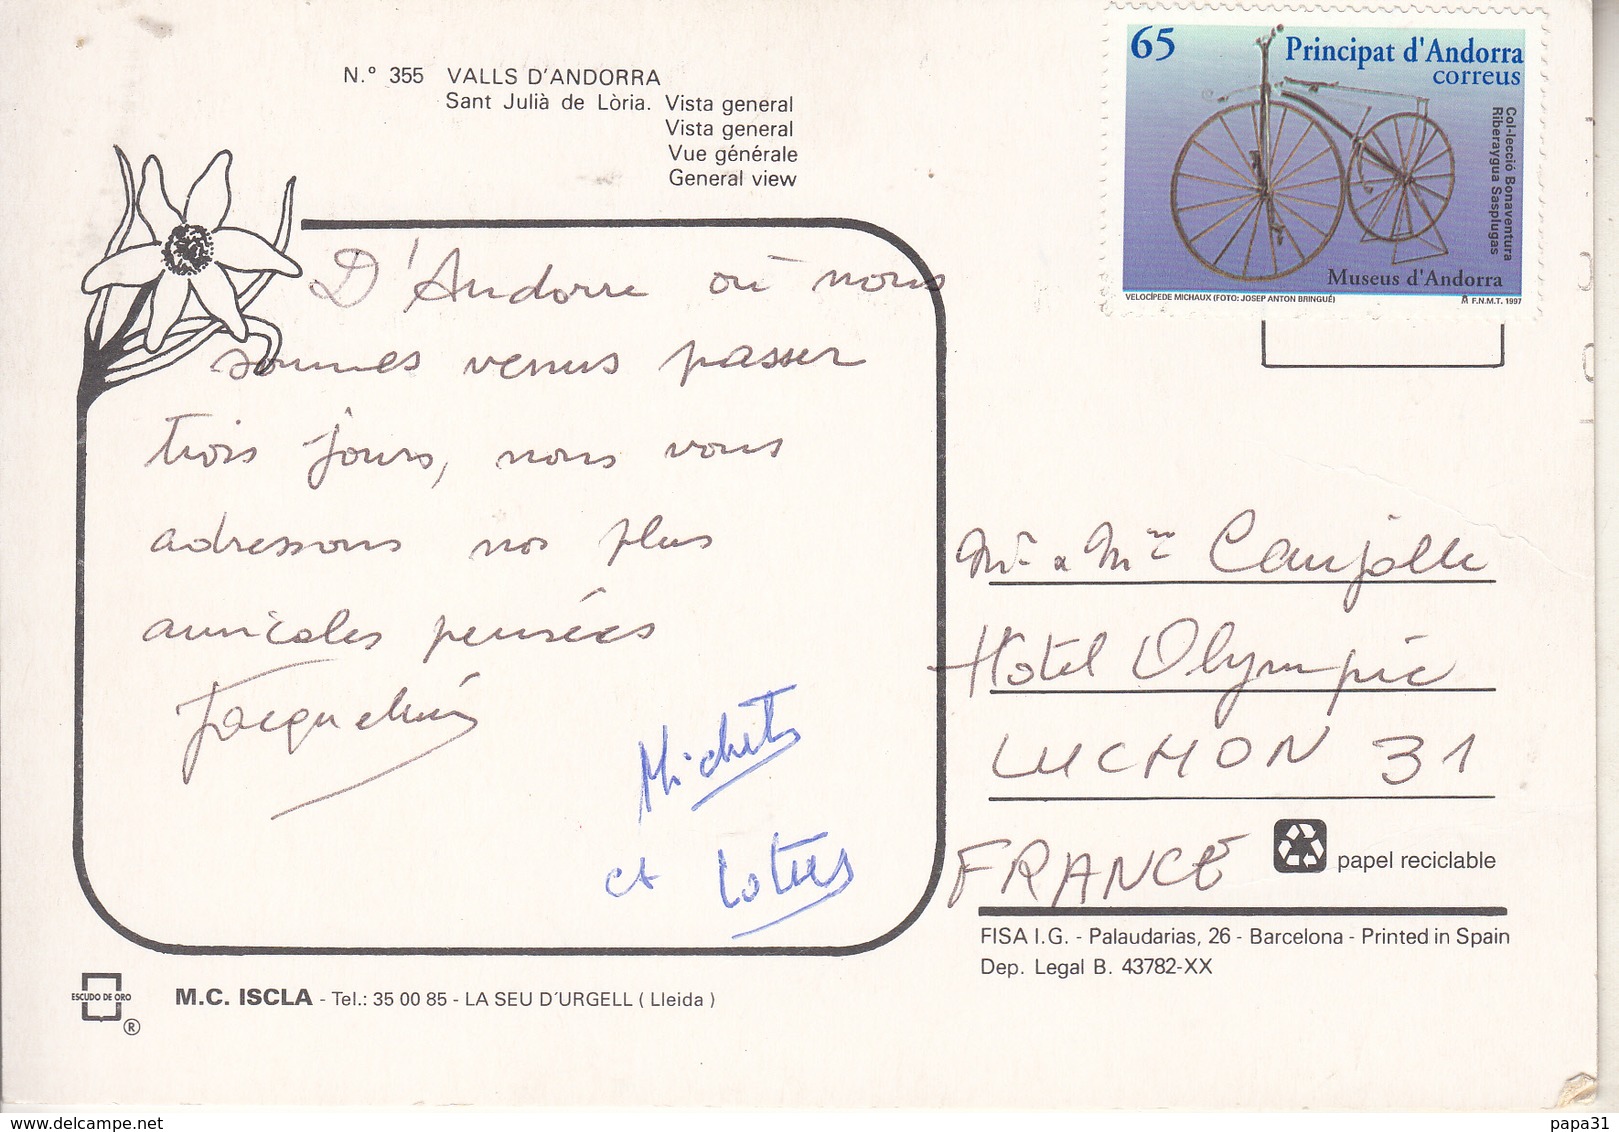 N.º 355 VALLS D'ANDORRA
Sant Julià de Lòria. Vista general
Vista general
Vue générale
General view
65
Principat d'Andorra
correus
Col·lecció Bonaventura
Riberaygua Sasplugas
Museus d'Andorra
VELOCÍPEDE MICHAUX (FOTO: JOSEP ANTON BRINGUÉ)
F.N.M.T. 1997
D'Andorre où nous
sommes venus passer
trois jours, nous vous
adressons nos plus
amicales pensées
Jacqueline
et Lotus
Mr & Mme Caujolle
Hotel Olympic
LUCHON 31
FRANCE
papel reciclable
FISA I.G. - Palaudarias, 26 - Barcelona - Printed in Spain
Dep. Legal B. 43782-XX
ESCUDO DE ORO
®
M.C. ISCLA - Tel.: 35 00 85 - LA SEU D'URGELL ( Lleida )
www.delcampe.net
papa31